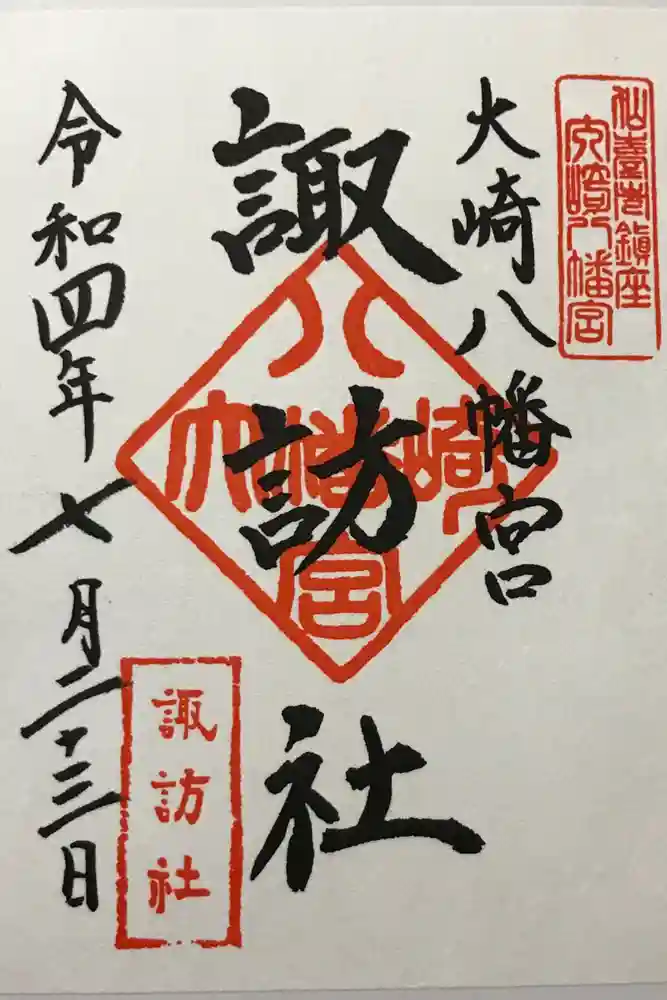 仙臺市鎮座
大崎八幡宮
大崎八幡宮
諏訪社
八幡宮
大崎
諏訪社
令和四年七月二十三日